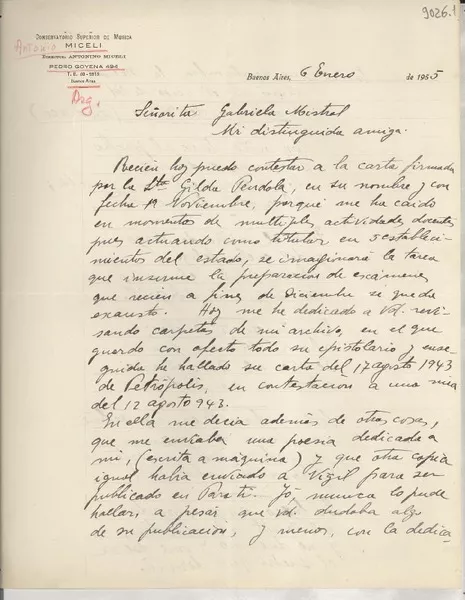 9026.1
CONSERVATORIO SUPERIOR DE MUSICA
Antonio MICELI
DIRECTOR: ANTONINO MICELI
PEDRO GOYENA 494
T. E. 60 -
Buenos Aires
Arg.
Buenos Aires, 6 Enero de 1955
Señorita Gabriela Mistral
Mi distinguida amiga.
Recien hoy puedo contestar a la carta firmada
por la Srta Gilda Pendola, en su nombre y con
fecha 19 Noviembre, porqué me ha caido
en momentos de multiples actividades docentes
pues actuando como titular en 5 estableci-
mientos del estado, se imaginará la tarea
que insume la preparacion de exámenes
que recien a fines de Diciembre se queda
exausto. Hoy me he dedicado a Vd. revi-
sando carpetas de mi archivo, en el que
guardo con afecto todo su epistolario y ense-
guida he hallado su carta del 17 agosto 1943
de Petrópolis, en contestacion a una mia
del 12 agosto 943.
En ella me decia además de otras cosas,
que me enviaba una poesia dedicada a
mi, (escrita a máquina) y que otra copia
igual habia enviado a Vigil para ser
publicado en Para ti. Yó, nunca lo pude
hallar, a pesar que vd. dudaba algo
de su publicacion, y menos, con la dedica-